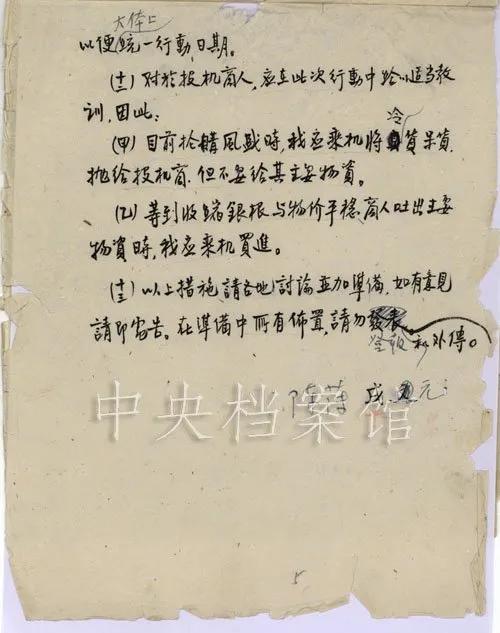 大体上
以便統一行動日期。
(十二) 对於投机商人,應在此次行動中給以適当教
訓,因此:
冷
(甲) 目前抢購風盛時,我应乘机將貨呆貨
抛給投机商,但不要給其主要物資。
(乙) 等到收縮銀根与物价平稳,商人吐出主要
物資時,我应乘机買進。
(十三) 以上措施,請各地討論並加準備,如有意見
請即電告。在準備中所有佈置,請勿發表
登報和外傳。
陈薄 戌元
中央档案馆
5